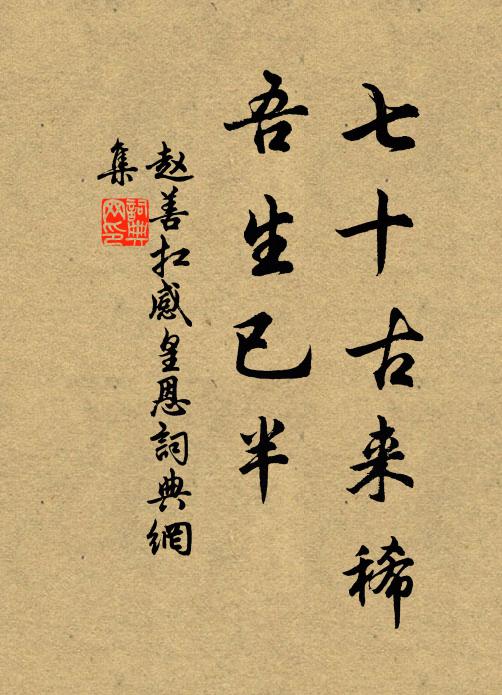 七十古来稀
吾生已半
赵善扛感皇恩詞典網
集
詞典
网印